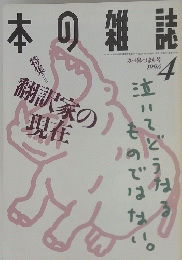 本の雑誌
4
特集=
翻訳家の
現在
泣いてどうなる
ものではない。